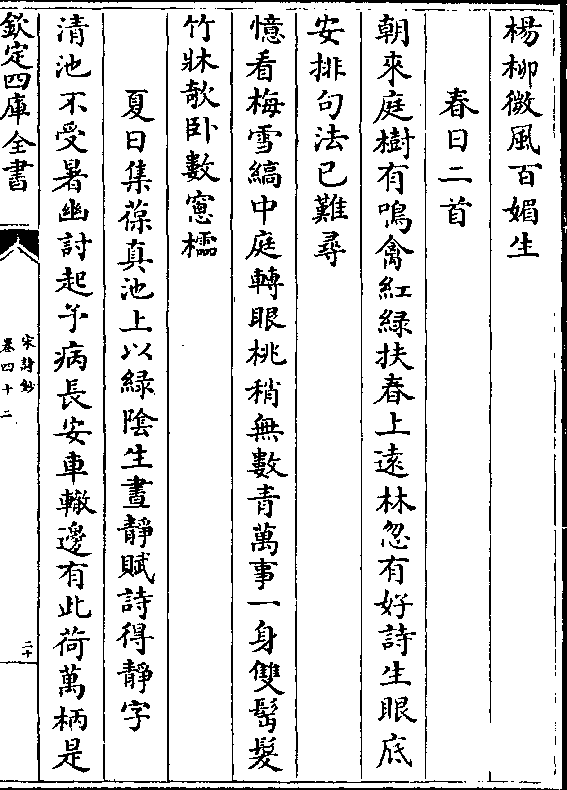 楊柳微風百媚生
春日二首
朝來庭樹有鳴禽紅緑扶春上逺林忽有好詩生眼底
安排句法已難尋
憶看梅雪縞中庭轉眼桃稍無數青萬事一身雙鬢髮
竹牀欹卧數窻櫺
夏日集葆真池上以緑陰生晝靜賦詩得靜字
清池不受暑幽討起予病長安車轍邊有此荷萬柄是
欽定四庫全書
宋詩鈔
卷四十二
二十